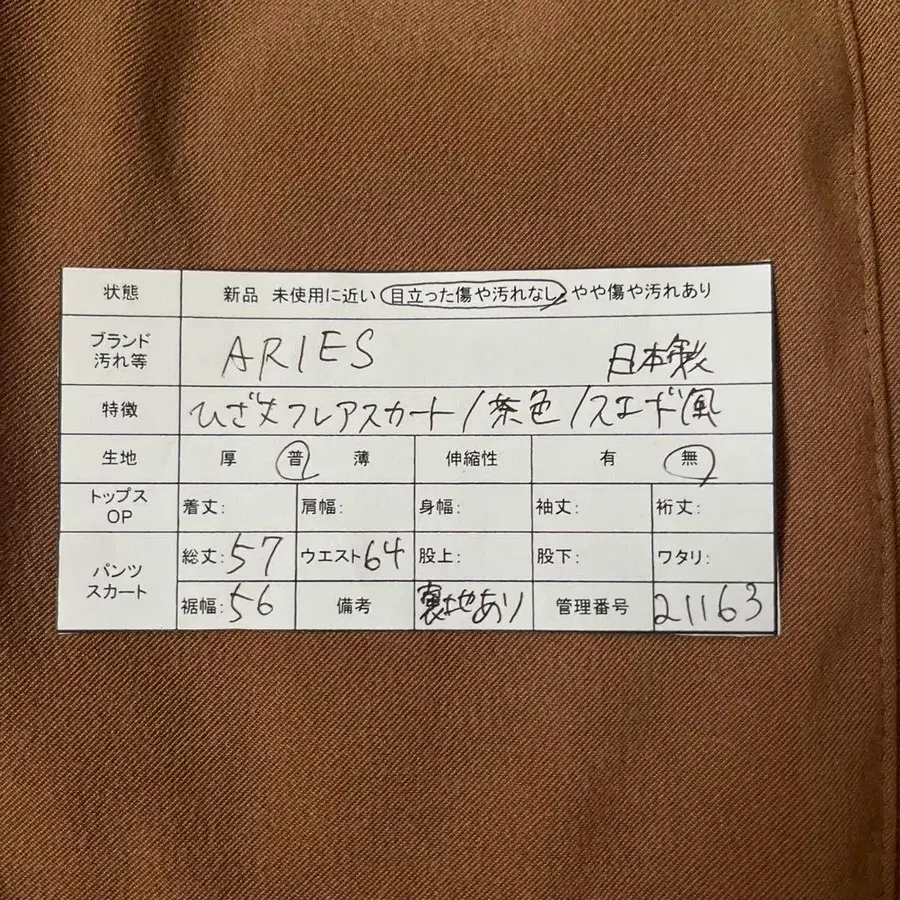 状態 新品 未使用に近い 目立った傷や汚れなし やや傷や汚れあり
ブランド 汚れ等 ARIES 日本製
特徴 ひざ丈フレアスカート/茶色/スエード風
生地 厚 普 薄 伸縮性 有 無
トップス OP 着丈: 肩幅: 身幅: 袖丈: 裄丈:
パンツ スカート 総丈:57 ウエスト64 股上: 股下: ワタリ:
裾幅:56 備考 裏地あり 管理番号 21163